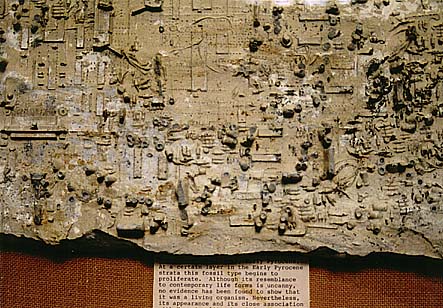 At a certain layer in the Early Pyrocene
strata this fossil type begins to
proliferate. Although its resemblance
to contemporary life forms is uncanny,
no evidence has been found to show that
it was a living organism. Nevertheless,
its appearance and its close association